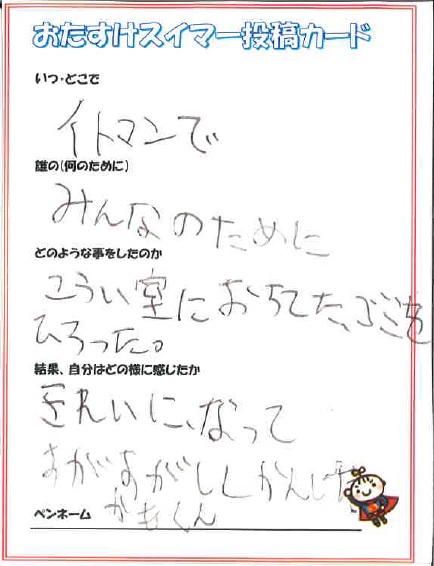 おたすけスイマー投稿カード
いつ・どこで
イトマンで
誰の(何のために)
みんなのために
どのような事をしたのか
こうい室におちてた、ごみを
ひろった。
結果、自分はどの様に感したか
きれいに、なって
すがすがししくかんじた
ペンネーム
かもくん